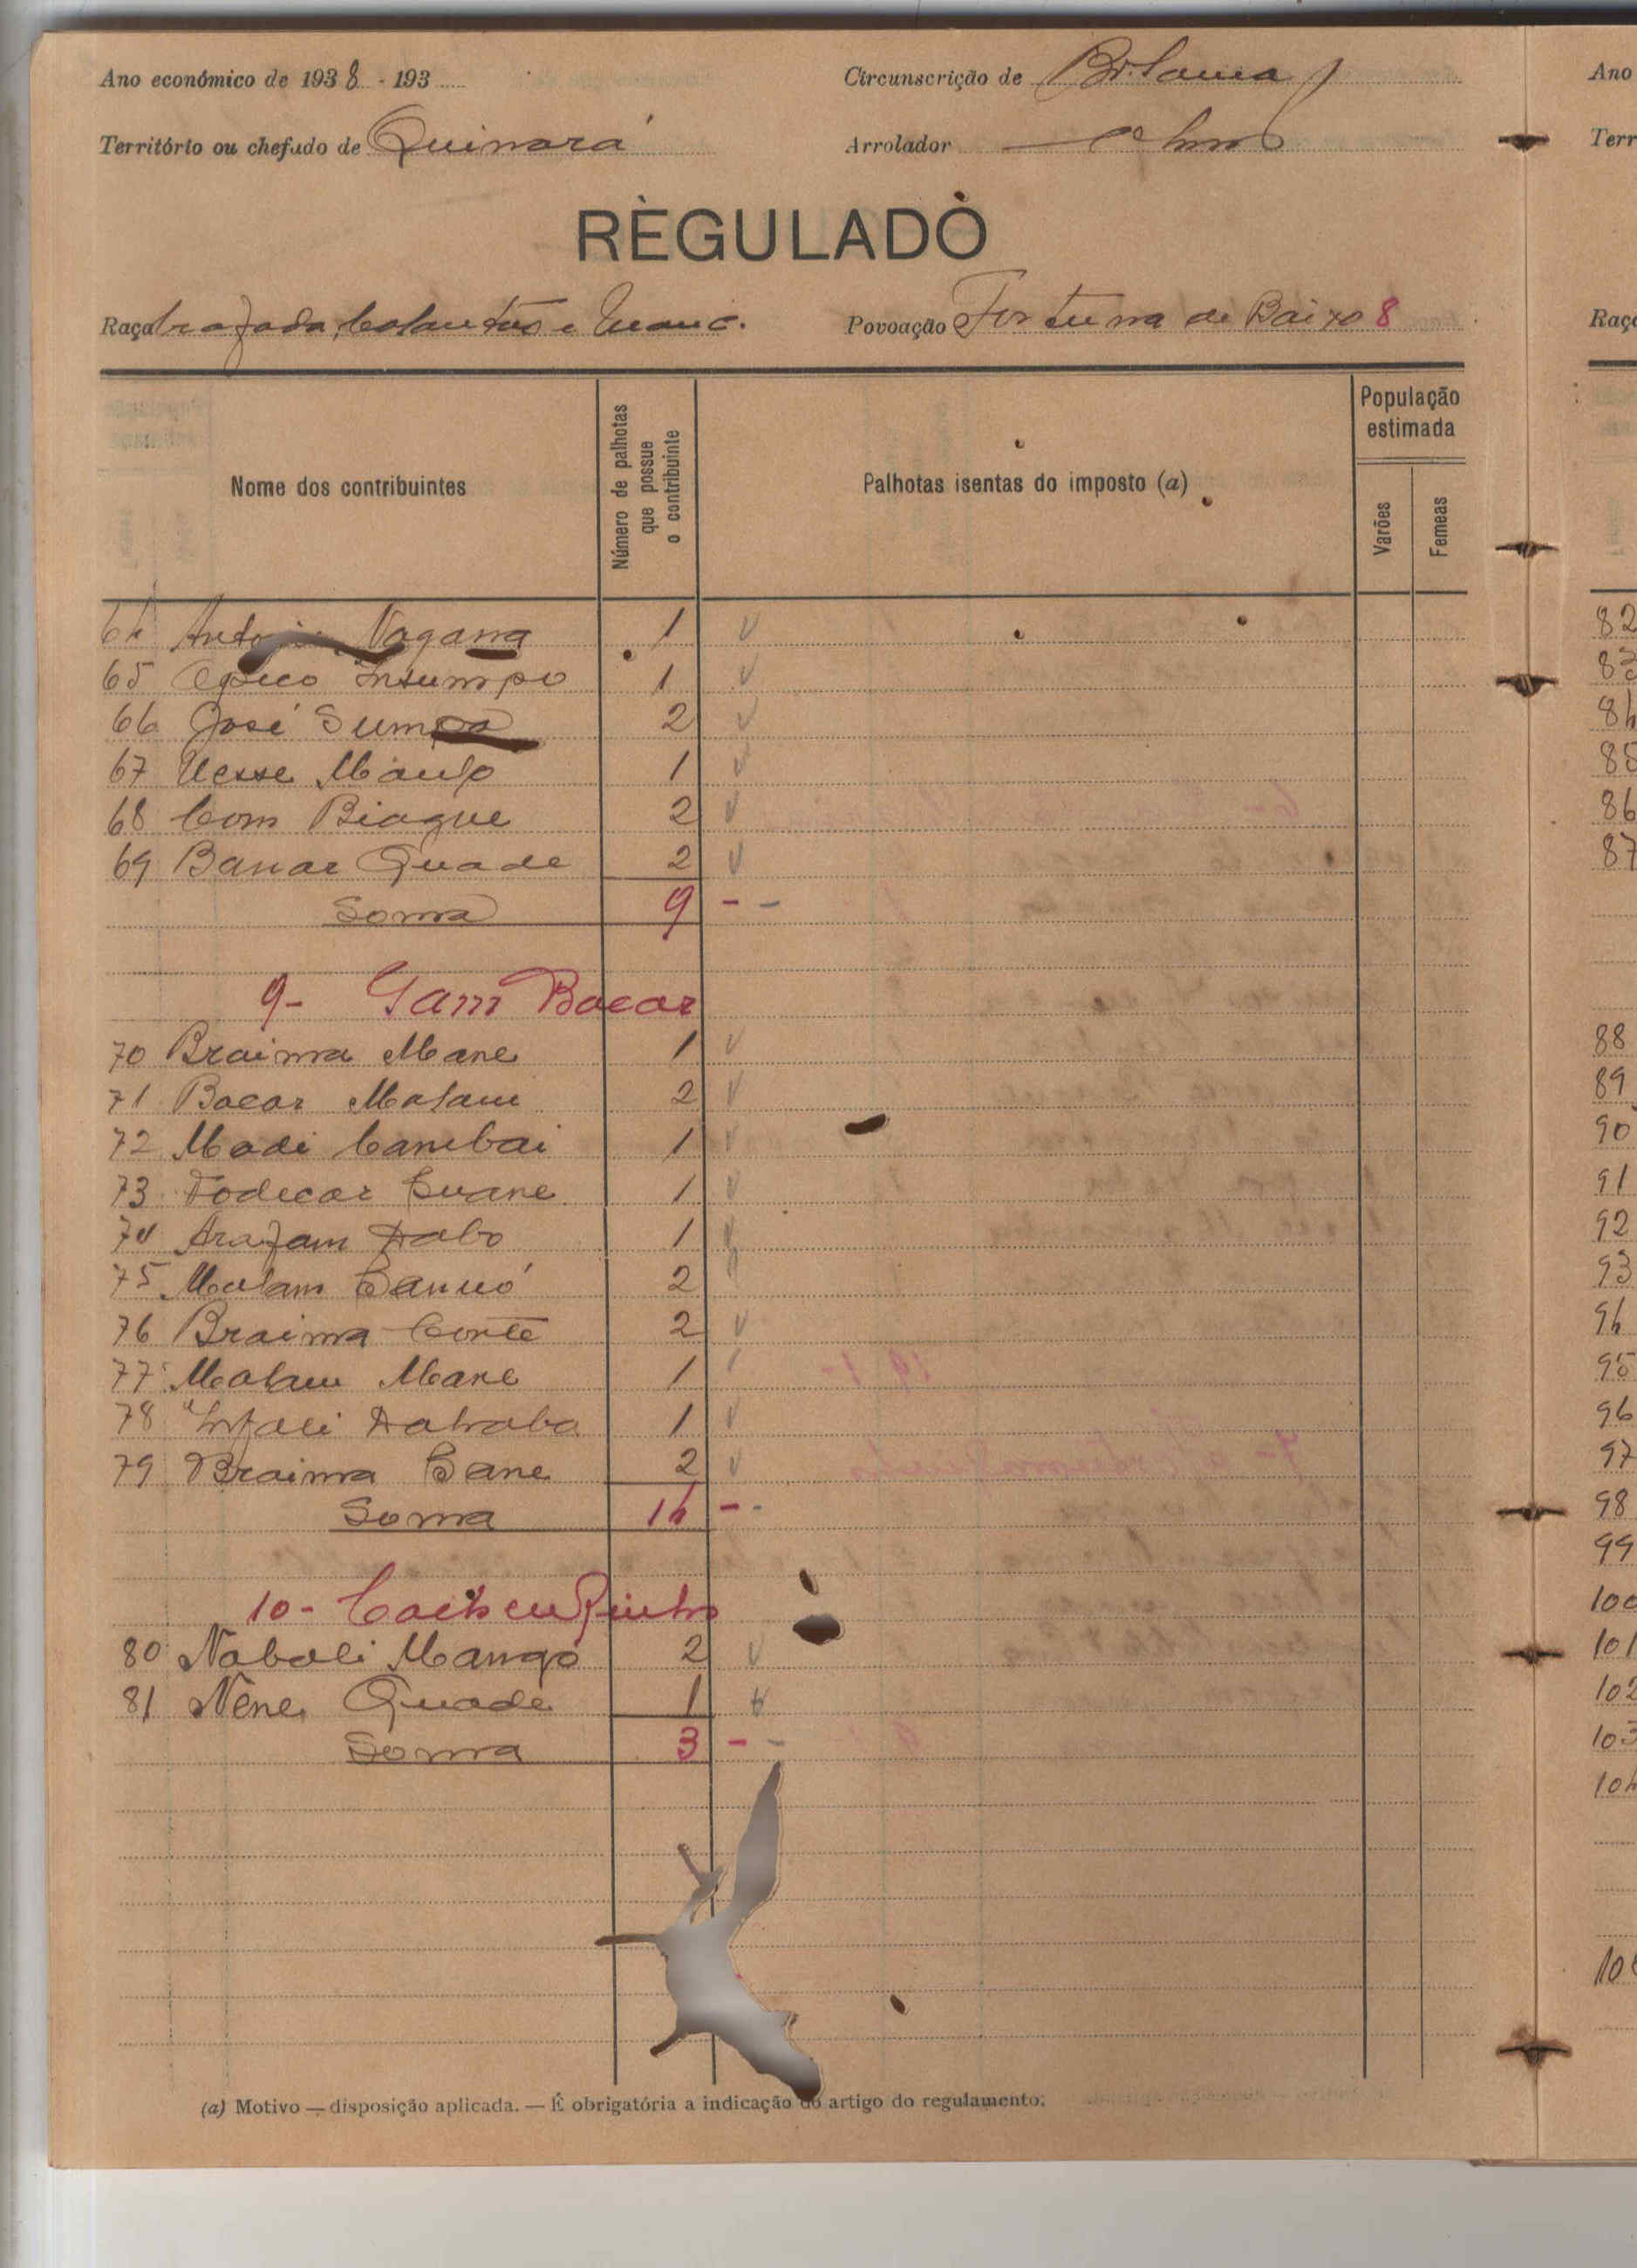 Ano económico de 1938 - 193
Circunscrição de Bolama
Território ou chefado de Quinara
Arrolador
RÈGULADÒ
Raça
Povoação Fortuna de Baixo 8
Nome dos contribuintes
Número de palhotas que possue o contribuinte
Palhotas isentas do imposto (a)
População estimada
Varões
Femeas
64 Nagana 1
65 Insumpo 1
66 José Sumpa 2
67 1
68 Com Biague 2
69 Banar Quade 2
Soma 9 - -
9 - Gam Bacar
70 Braima Mane 1
71 Bacar Malam 2
72 Madi Cambai 1
73 Fodecar Suane 1
74 Arafam Dabo 1
75 Malam Sanuó 2
76 Braima Conté 2
77 Malam Mane 1
78 Infali 1
79 Braima Sane 2
Soma 14 - -
10 -
80 Nabali Mango 2
81 Néne Quade 1
Soma 3 - -
(a) Motivo — disposição aplicada. — É obrigatória a indicação do artigo do regulamento.
Ano
Terr
Raç
82
83
84
85
86
87
88
89
90
91
92
93
94
95
96
97
98
99
100
101
102
103
104